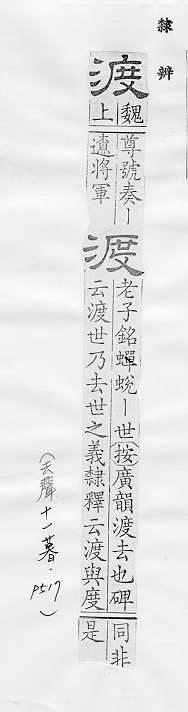 隸辨
渡
魏
上
尊號奏丨
遼將軍
渡
老子銘蟬蛻丨世(按)廣韻渡去也碑
云渡世乃去世之義隸釋云渡與度
同非
是
(去聲十一暮. P517)